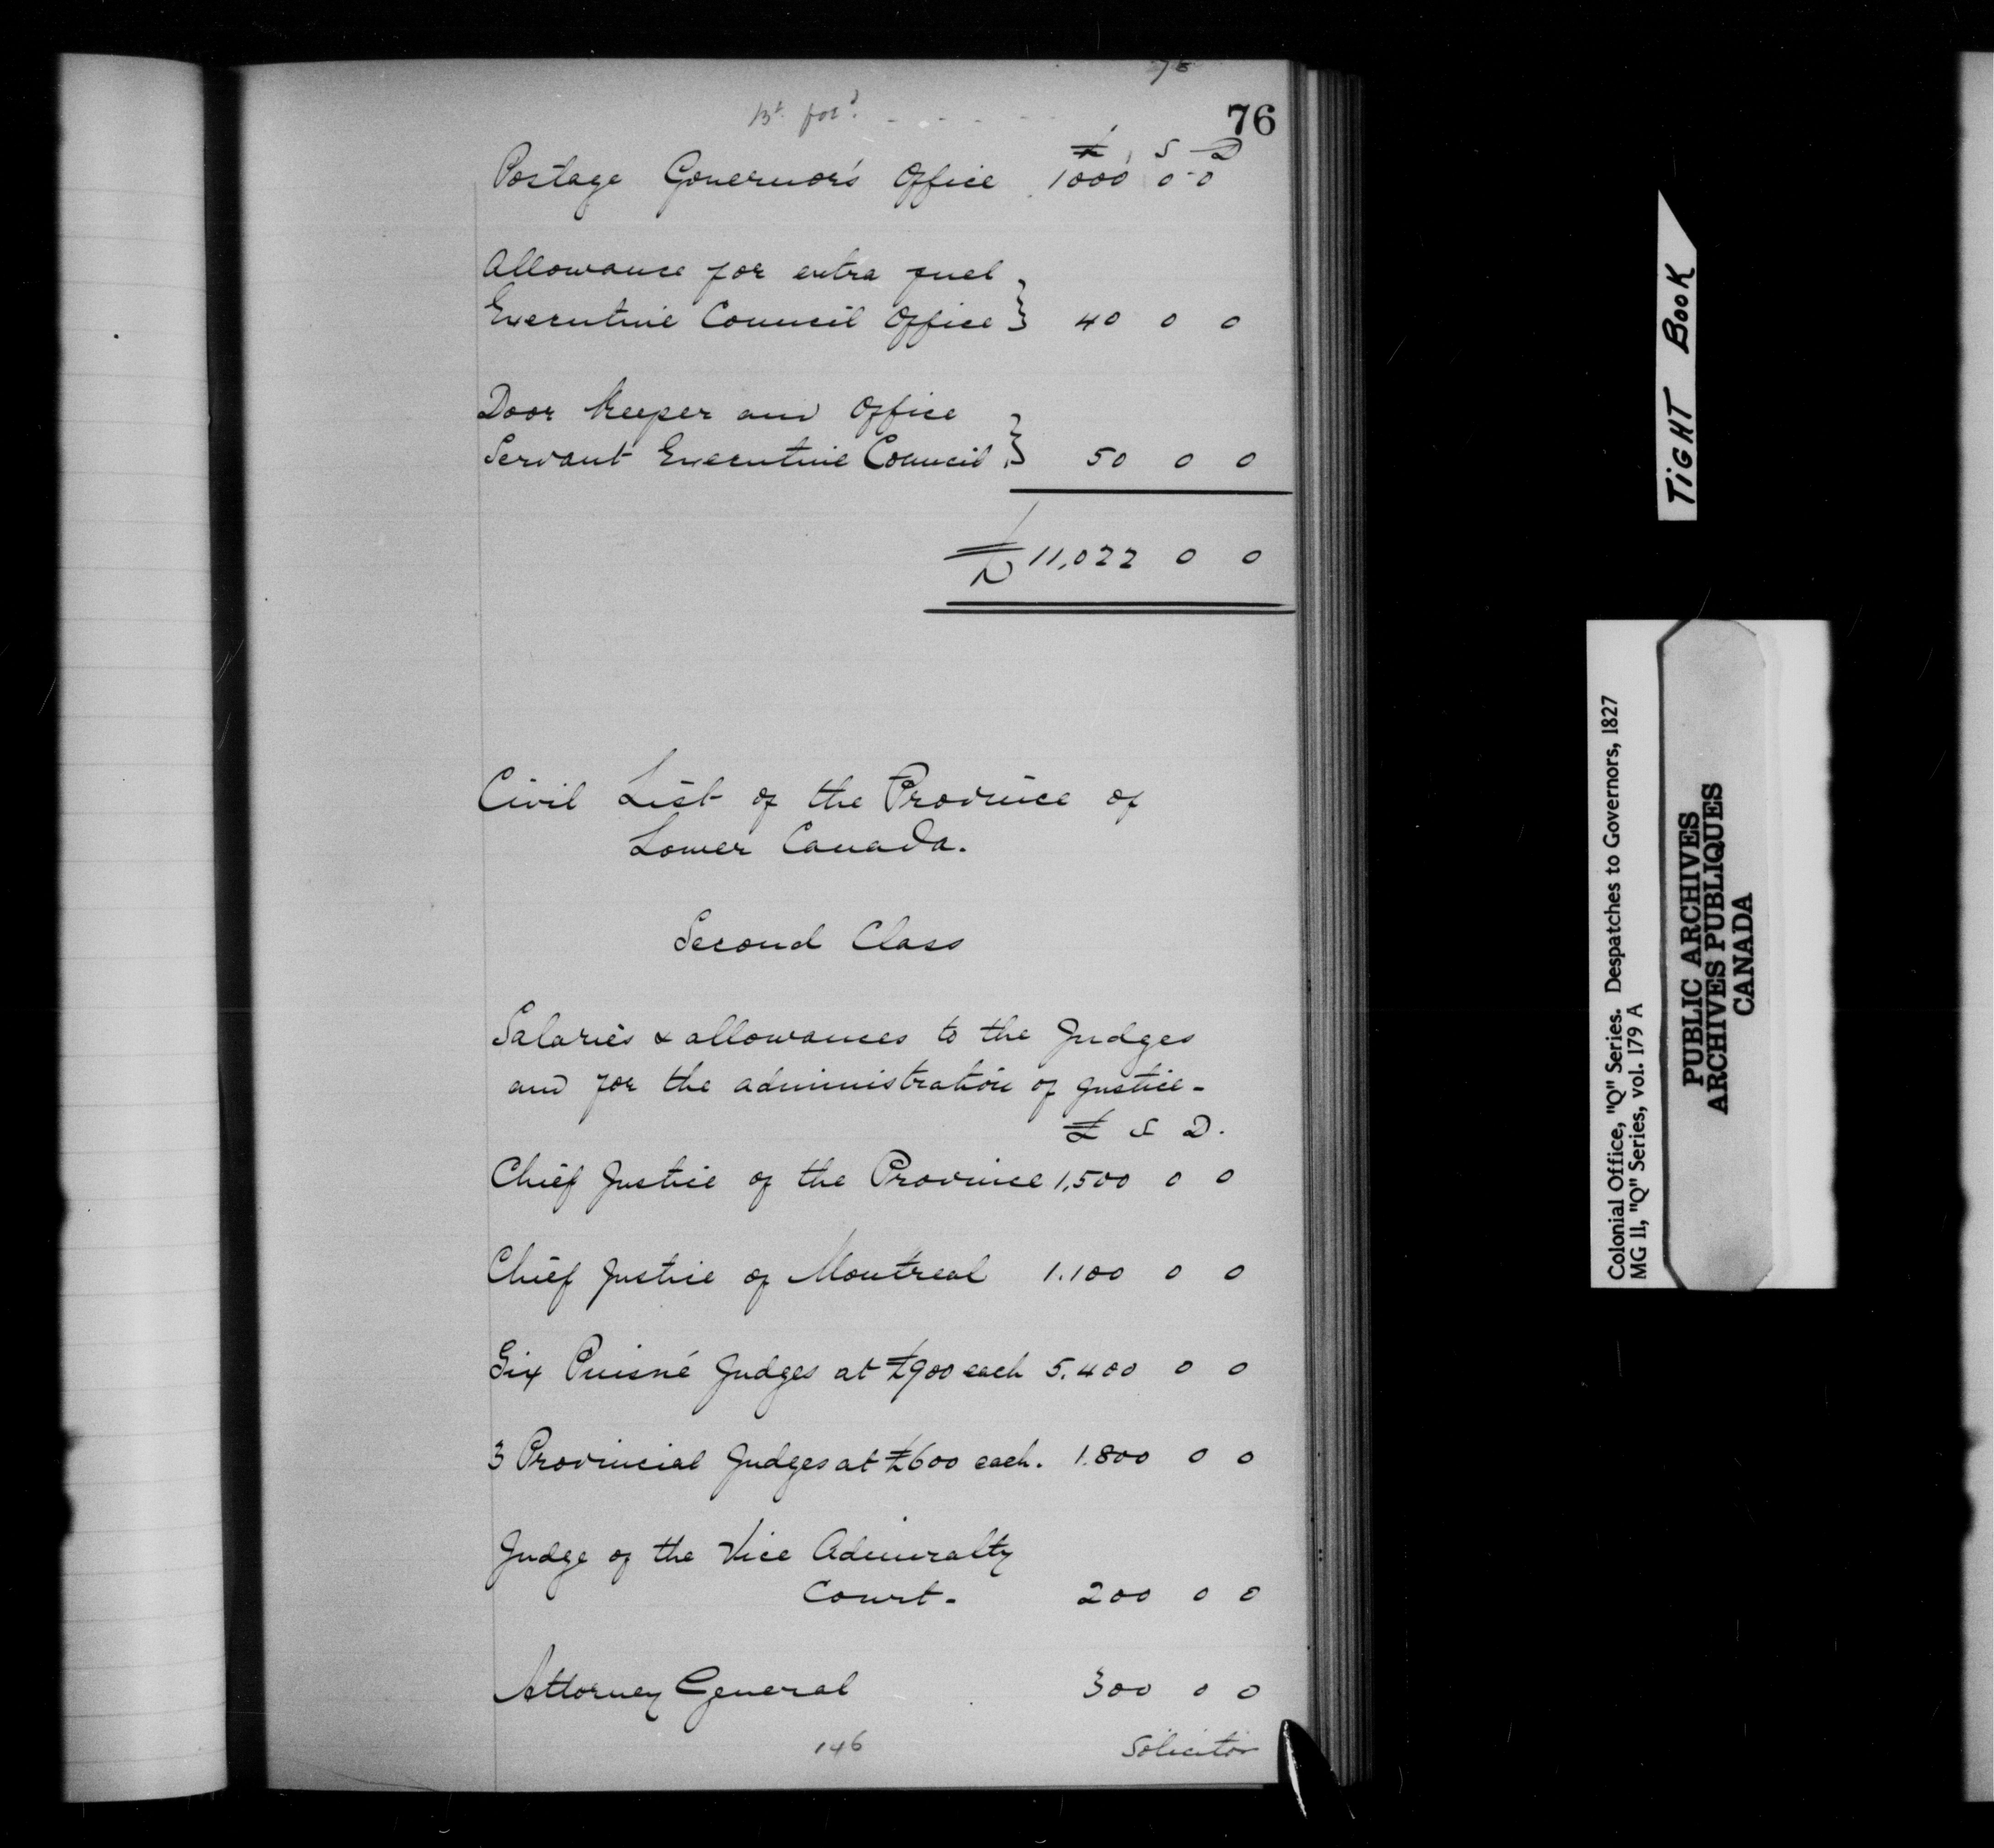 76
Bt ford. - - - - -
£ S D
Postage Governor's Office 1000 0-0
Allowance for extra fuel
Executive Council Office } 40 0 0
Door keeper and Office
Servant Executive Council } 50 0 0
£ 11,022 0 0
Civil List of the Province of
Lower Canada.
Second Class
Salaries & allowances to the Judges
and for the administration of justice-
£ S D.
Chief Justice of the Province 1,500 0 0
Chief Justice of Montreal 1.100 0 0
Six Puisné Judges at £900 each 5.400 0 0
3 Provincial Judges at £600 each. 1.800 0 0
Judge of the Vice Admiralty
Court- 200 0 0
Attorney General 300 0 0
146
Solicitor
TiGHT BooK
Colonial Office, "Q" Series. Despatches to Governors, 1827
MG 11, "Q" Series, vol. 179 A
PUBLIC ARCHIVES
ARCHIVES PUBLIQUES
CANADA